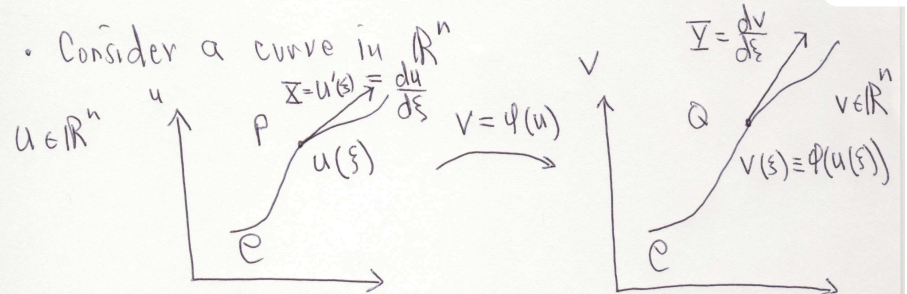 • Consider a curve in ℝⁿ
u ∈ ℝⁿ
u
P
X = u'(ξ) = du/dξ
u(ξ)
C
V = φ(u)
V
Q
Y = dv/dξ
v ∈ ℝⁿ
V(ξ) ≡ φ(u(ξ))
C